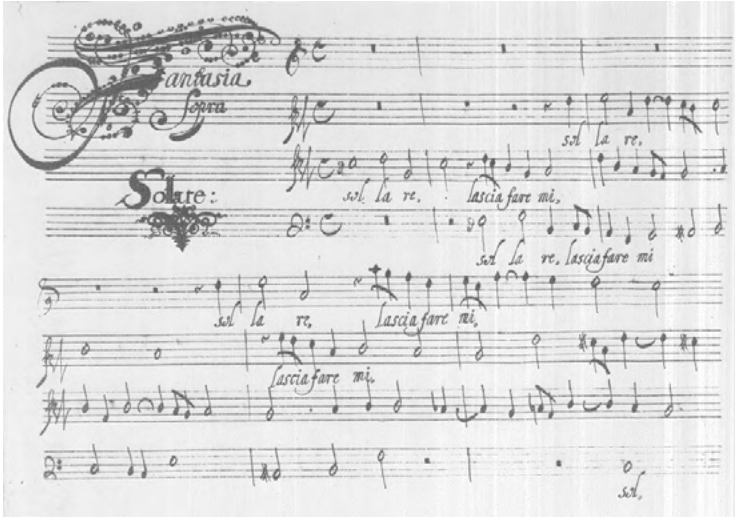 Fantasia
Sopra
sol la re,
Solare:
sol la re, lascia fare mi,
sol la re, lascia fare mi
sol la re, lascia fare mi,
lascia fare mi,
sol,